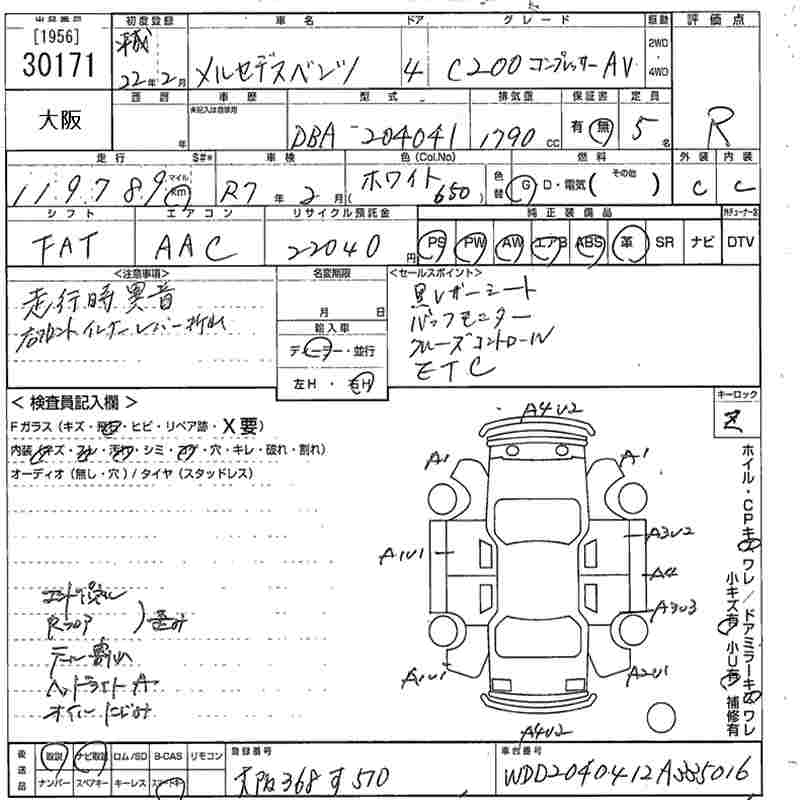 [1956]
30171
大阪
初度登録
平成
22年2月
車名
メルセデスベンツ
ドア
4
グレード
C200 コンプレッサー AV
駆動
2WD
4WD
評価点
R
西暦
年
車歴
未記入は自家用
型式
DBA-204041
排気量
1790 CC
保証書
有・無
定員
5名
走行
119789
マイル
Km
S#*
車検
R7年2月
色(Col.No)
ホワイト
(650)
色替
燃料
G・D・電気(その他)
外装
C
内装
C
シフト
FAT
エアコン
AAC
リサイクル預託金
22040円
純正装備品
PS PW AW エアB ABS 革 SR ナビ DTV
<注意事項>
走行時異音
名変期限
月 日
輸入車
ディーラー・並行
左H・右H
<セールスポイント>
黒レザーシート
バックモニター
クルーズコントロール
ETC
キーロック
<検査員記入欄>
Fガラス(キズ・飛石・ヒビ・リペア跡・X要)
内装(キズ・スレ・汚れ・シミ・コゲ・穴・キレ・破れ・割れ)
オーディオ(無し・穴)/タイヤ(スタッドレス)
A4U2
A1
A1
A1U1
A3U2
A4
A3U3
A1U1
A2U1
A4U2
Rフロア
ヘッドライトA
オイルにじみ
ホイル・CPキズワレ/ドアミラーキズワレ
小キズ有 小U有 補修有
後送品
取説
ナビ取説
ロム/SD
B-CAS
リモコン
ナンバー
スペアキー
キーレス
スマートキー
登録番号
大阪368す510
車台番号
WDD2040412A335016